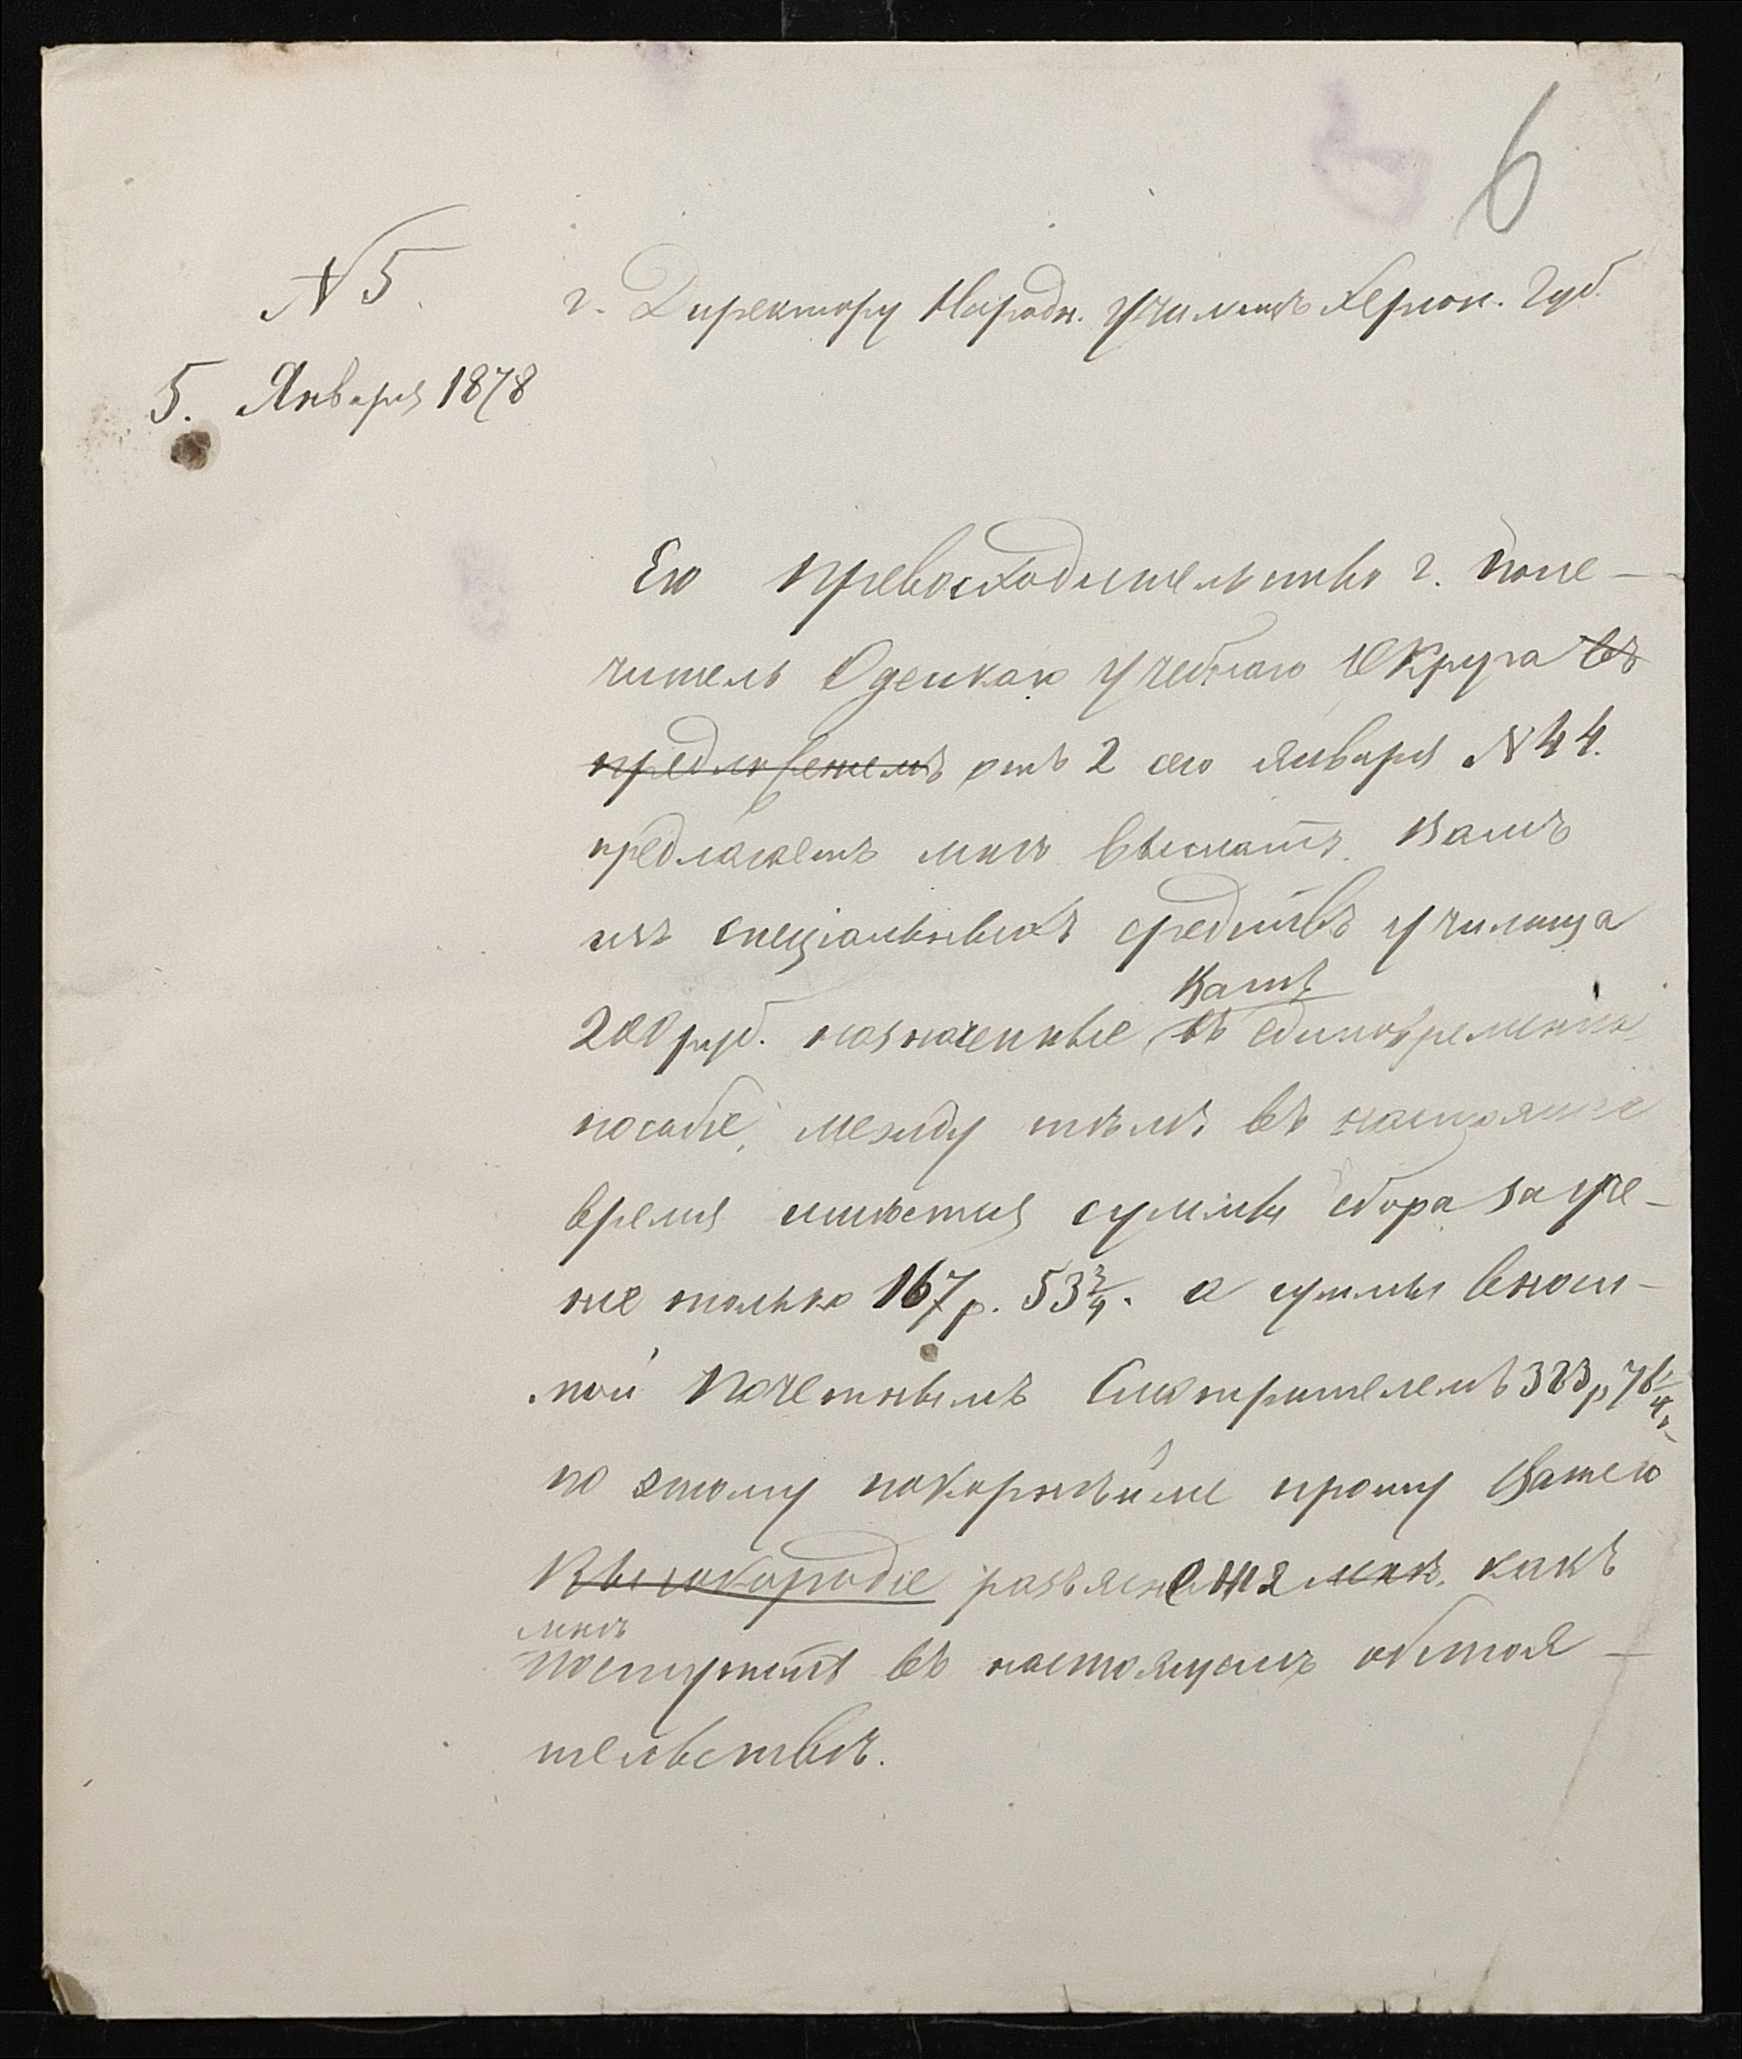 6
№ 5.
г. Директору Народн. Училищъ Херсон. Губ.
5. Января 1878
Его превосходительство г. Попе-
читель Одескаго учебнаго Округа въ
предложенiемъ отъ 2 сего января № 44.
предлагаетъ мнѣ выслать Вамъ
изъ спецiальныхъ средствъ училища
Вамъ
200 руб. назначенные въ единовременное
пособiе, между тѣмъ въ настоящее
время имѣется суммы сбора за уче-
нiе только 167 р. 53 3/4. а суммы вноси-
мой Почетнымъ Смотрителемъ 383 р 76 1/4 к.
по этому покорнѣйше прошу Вашего
Высокородiе разъясненiя мнѣ. какъ
мнѣ
поступить въ настоящемъ обстоя-
тельствѣ.